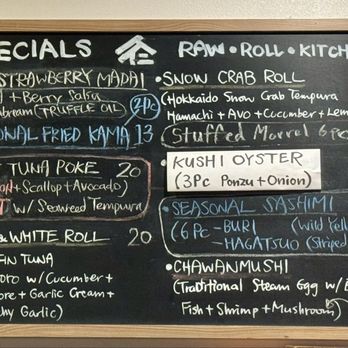 ECIALS
STRAWBERRY MADAI
+ Berry Salsa
bream (TRUFFLE OIL) 2Pc
ONAL FRIED KAMA 13
TUNA POKE 20
+ Scallop + Avocado)
w/ Seaweed Tempura
WHITE ROLL 20
TUNA
w/ Cucumber +
+ Garlic Cream +
Garlic)
RAW • ROLL • KITCH
• SNOW CRAB ROLL
(Hokkaido Snow Crab Tempura
Hamachi + Avo + Cucumber + Lem
Stuffed Morrel 6pc
• KUSHI OYSTER
(3Pc Ponzu + Onion)
• SEASONAL SASHIMI
(6Pc - BURI (Wild Yell
- HAGATSUO (Striped
• CHAWANMUSHI
(Traditional Steam Egg w/
Fish + Shrimp + Mushroom)